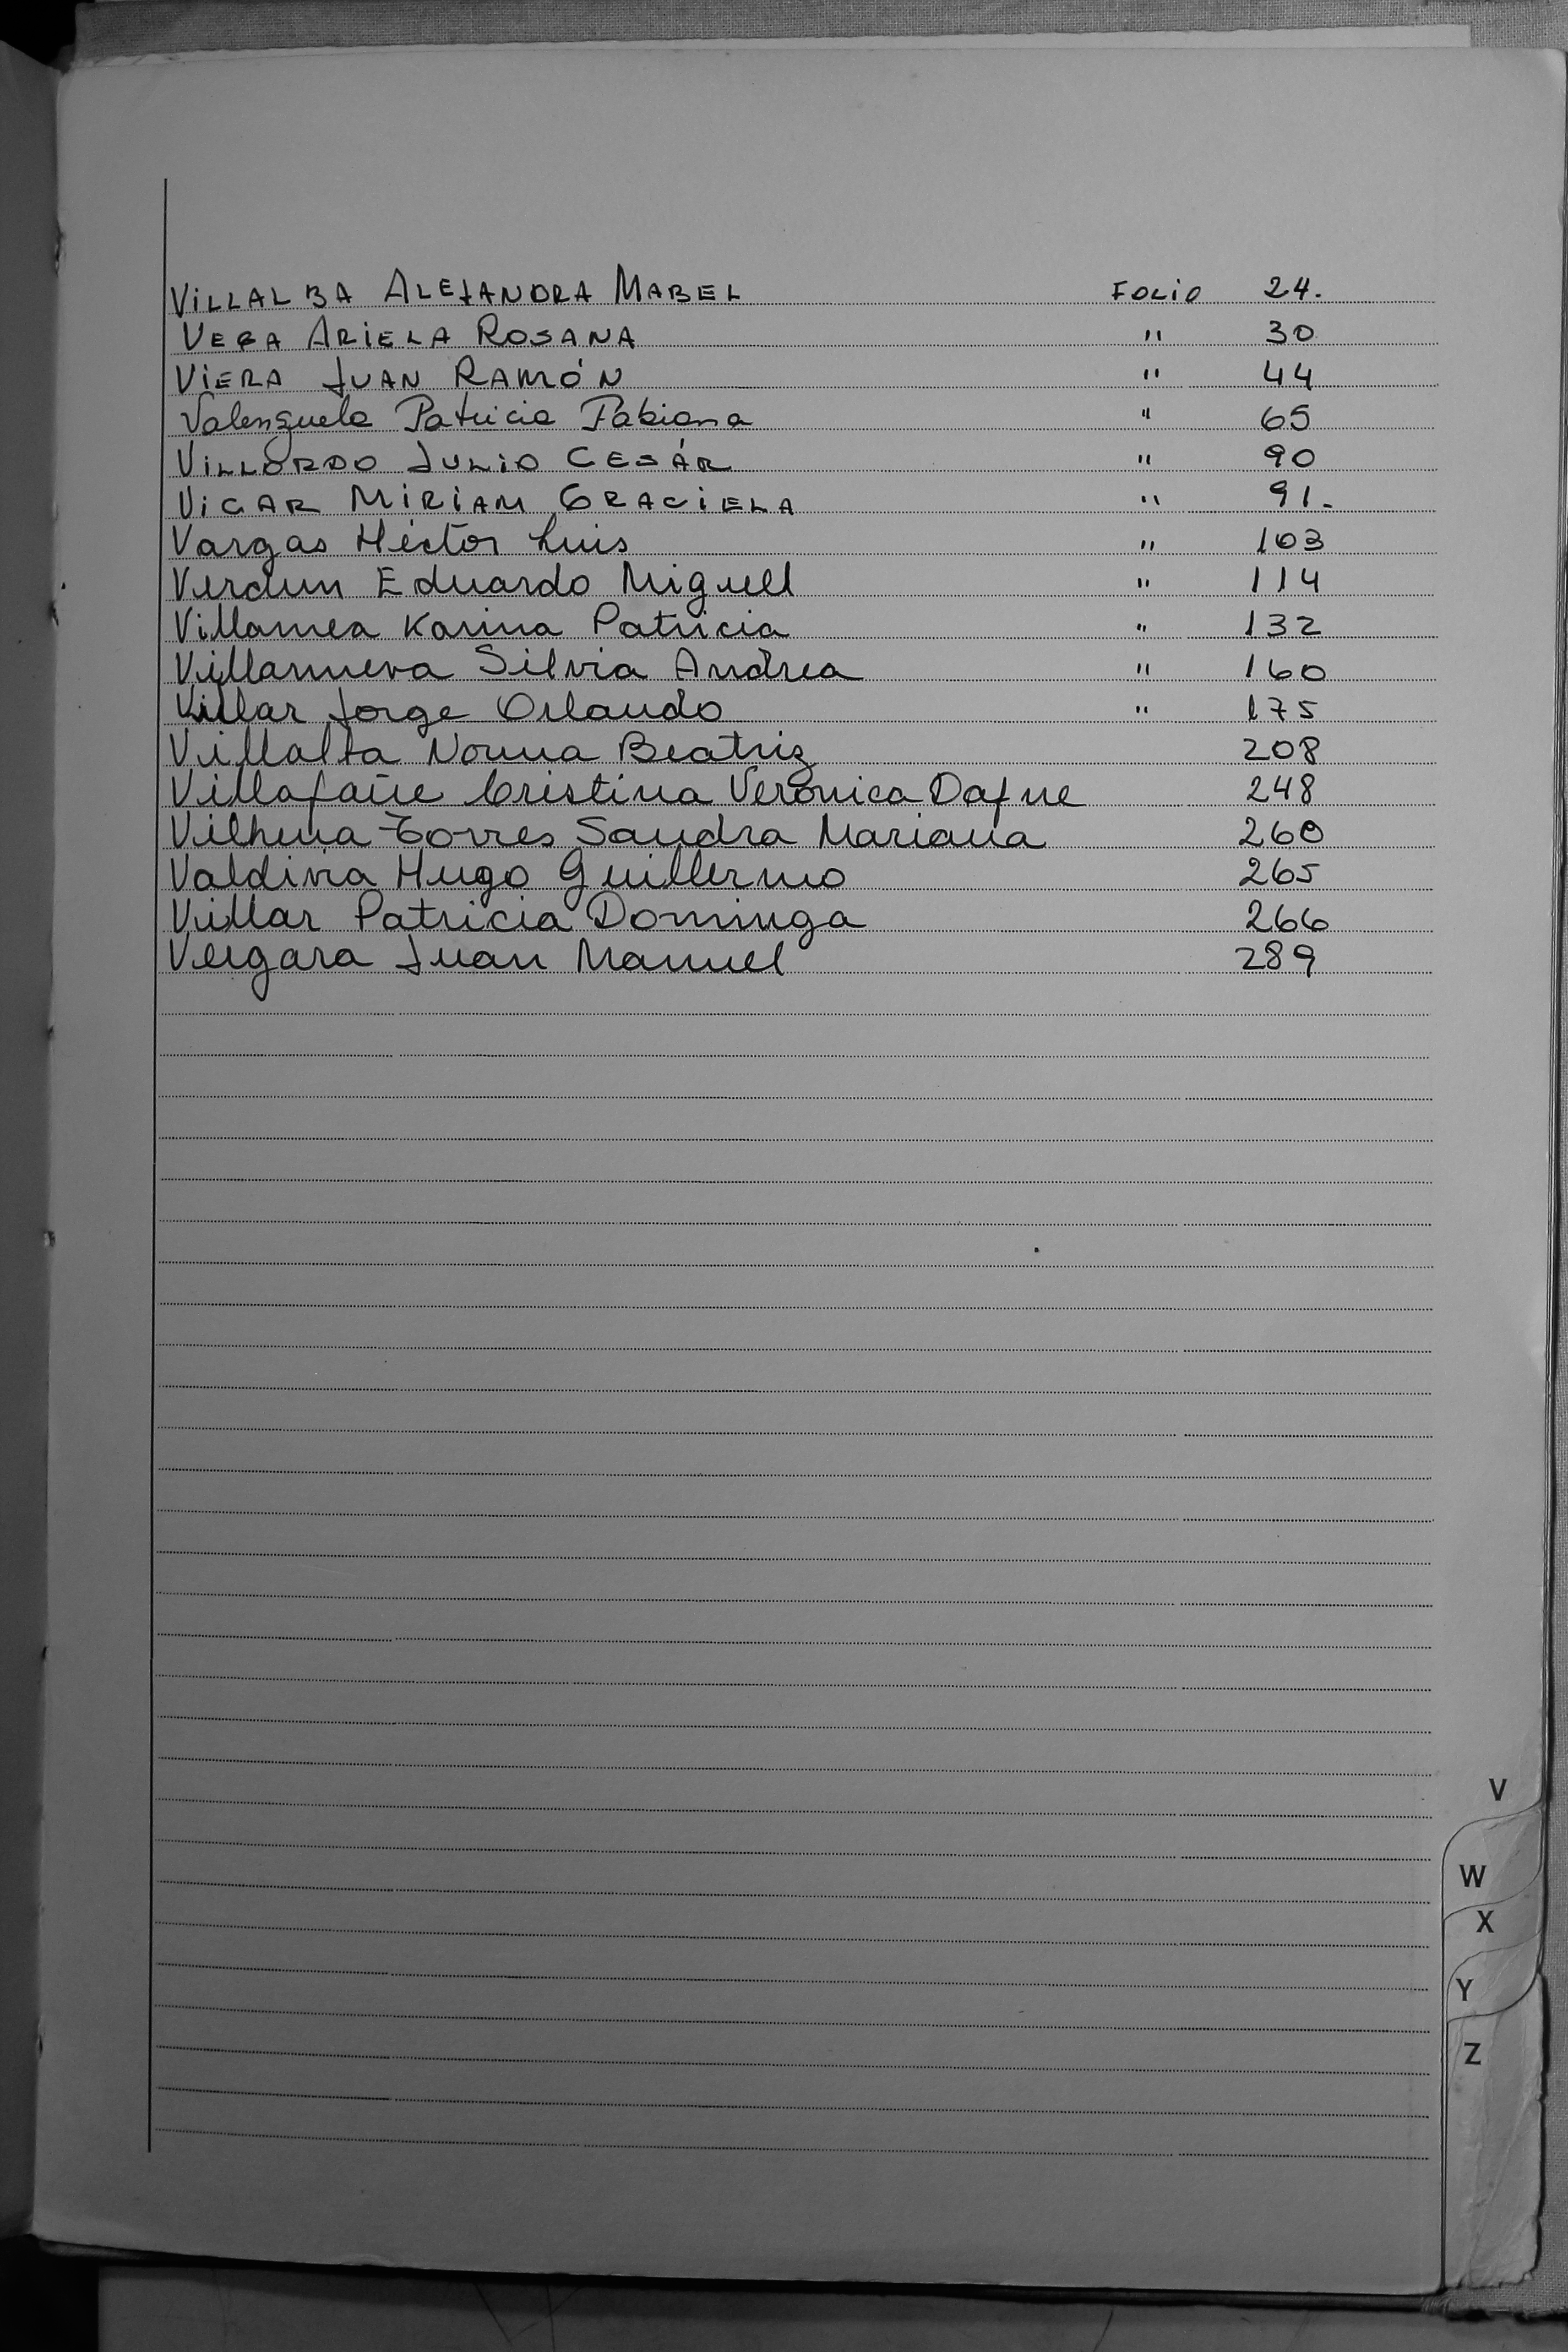 VILLALBA ALEJANDRA MABEL FOLIO 24.
VEGA ARIELA ROSANA " 30
VIERA JUAN RAMÓN " 44
Valenzuela Patricia Fabiana " 65
VILLORDO JULIO CESÁR " 90
VIGAR MIRIAM GRACIELA " 91.
Vargas Héctor Luis " 103
Verdun Eduardo Miguel " 114
Villamea Karina Patricia " 132
Villanueva Silvia Andrea " 160
Villar Jorge Orlando " 175
Villalta Norma Beatriz 208
Villafañe Cristina Verónica Dafne 248
Vilhena Torres Sandra Mariana 260
Valdivia Hugo Guillermo 265
Villar Patricia Dominga 266
Vergara Juan Manuel 289
V
W
X
Y
Z